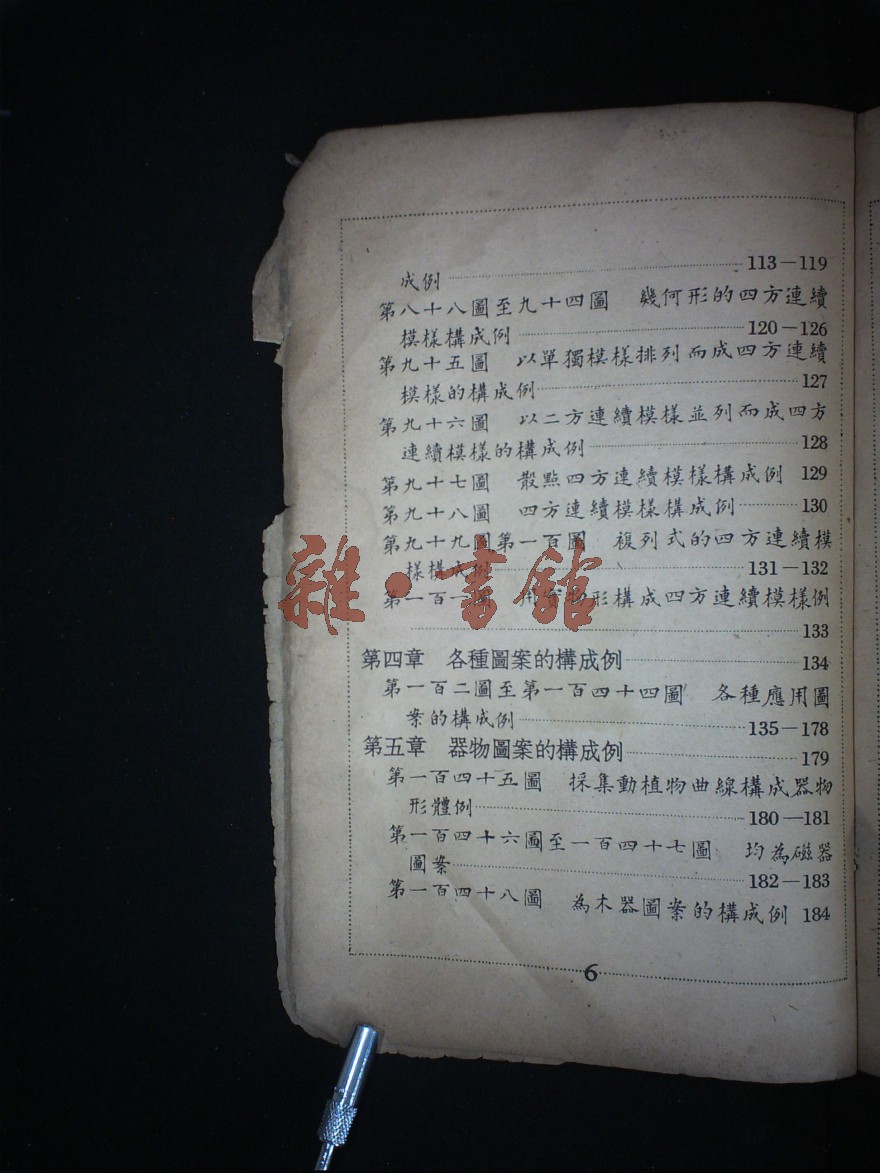 成例 113—119
第八十八圖至九十四圖　幾何形的四方連續
模樣構成例 120—126
第九十五圖　以單獨模樣排列而成四方連續
模樣的構成例 127
第九十六圖　以二方連續模樣並列而成四方
連續模樣的構成例 128
第九十七圖　散點四方連續模樣構成例 129
第九十八圖　四方連續模樣構成例 130
第九十九圖第一百圖　複列式的四方連續模
樣構成例 131—132
第一百一圖　用實物形構成四方連續模樣例
133
第四章　各種圖案的構成例 134
第一百二圖至第一百四十四圖　各種應用圖
案的構成例 135—178
第五章　器物圖案的構成例 179
第一百四十五圖　採集動植物曲線構成器物
形體例 180—181
第一百四十六圖至一百四十七圖　均為磁器
圖案 182—183
第一百四十八圖　為木器圖案的構成例 184
6
雜·書館